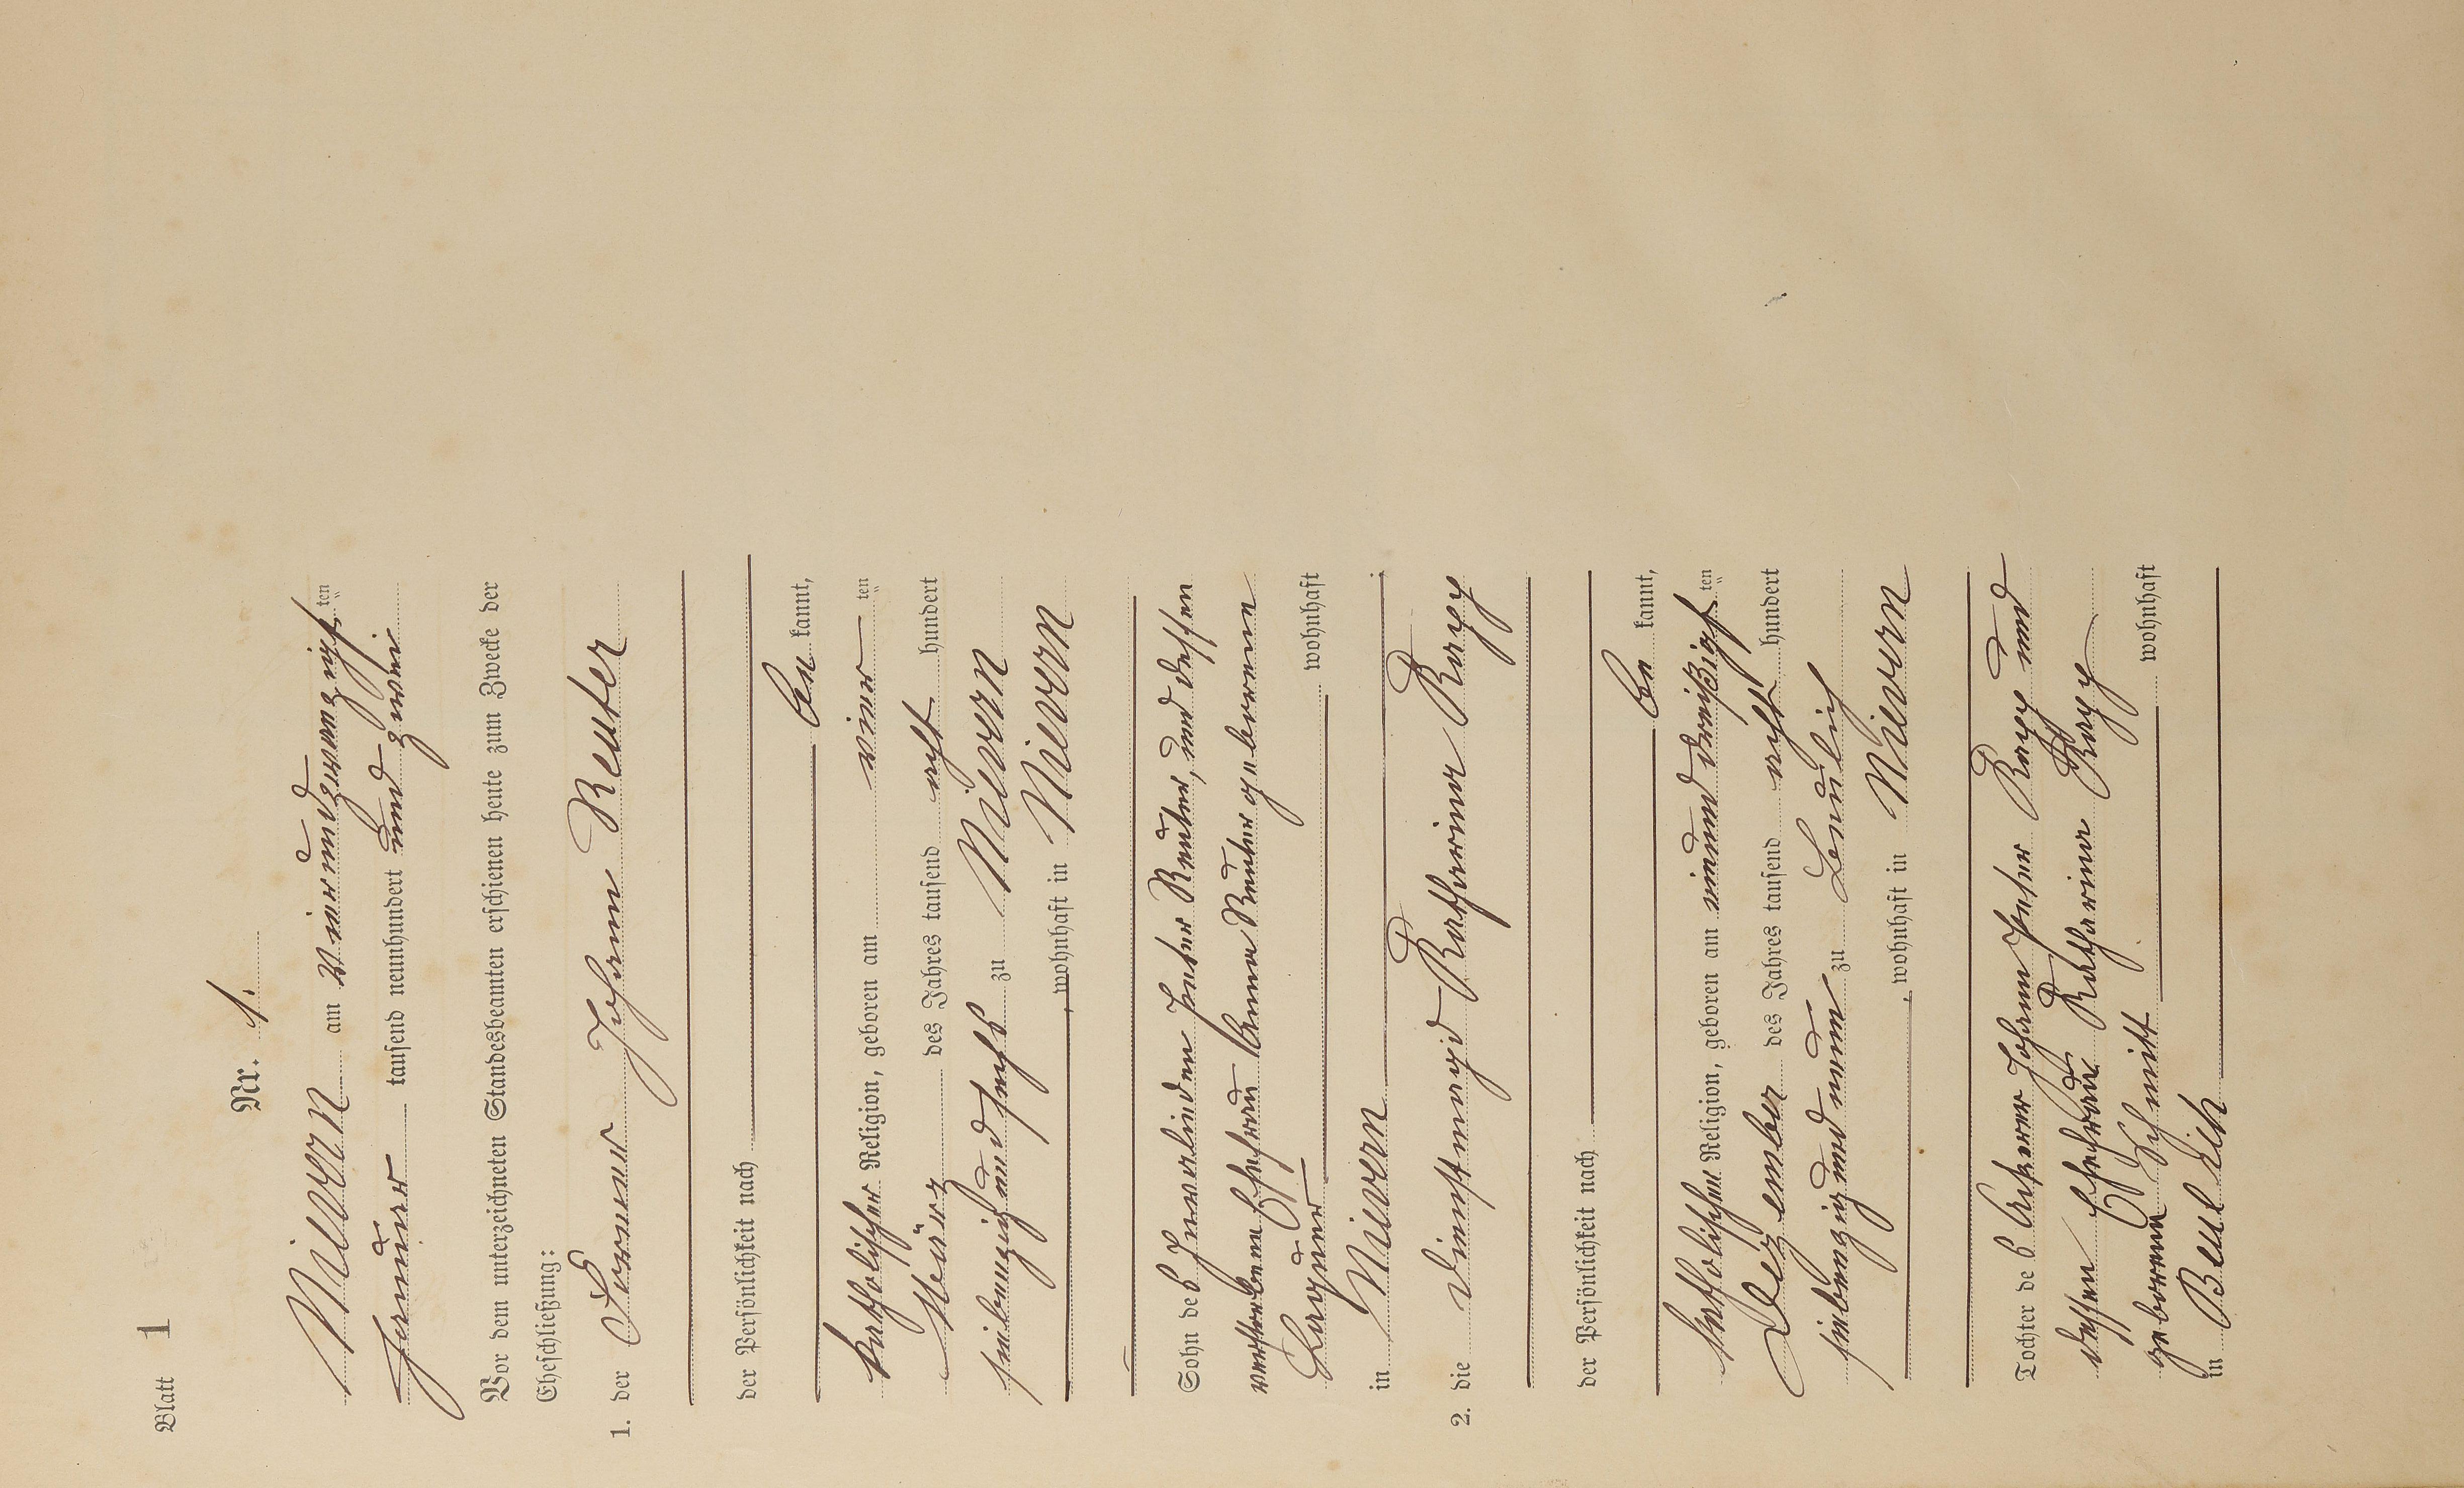 Blatt 1
Nr. 1.
Nievern am vierundzwanzigsten
Januar tausend neunhundert und zwei
Vor dem unterzeichneten Standesbeamten erschienen heute zum Zwecke der
Eheschließung:
1. der Former Johann Reuter
der Persönlichkeit nach
be kannt,
katholischer Religion, geboren am vier ten
März des Jahres tausend acht hundert
siebenzig und sechs zu Nievern
, wohnhaft in Nievern
Sohn des Invaliden Peter Reuter, und dessen
verstorbene Ehefrau Anna Reuter geborene
wohnhaft
in Nievern
2. die Dienstmagd Katharina Rapp
der Persönlichkeit nach
be kannt,
katholischer Religion, geboren am einunddreißigsten
Dezember des Jahres tausend acht hundert
siebenzig und neun zu Beulich
, wohnhaft in Nievern
Tochter des Ackerer Johann Peter Rapp und
dessen Ehefrau Katharina Rapp
geborenen Schmitt wohnhaft
in Beulich